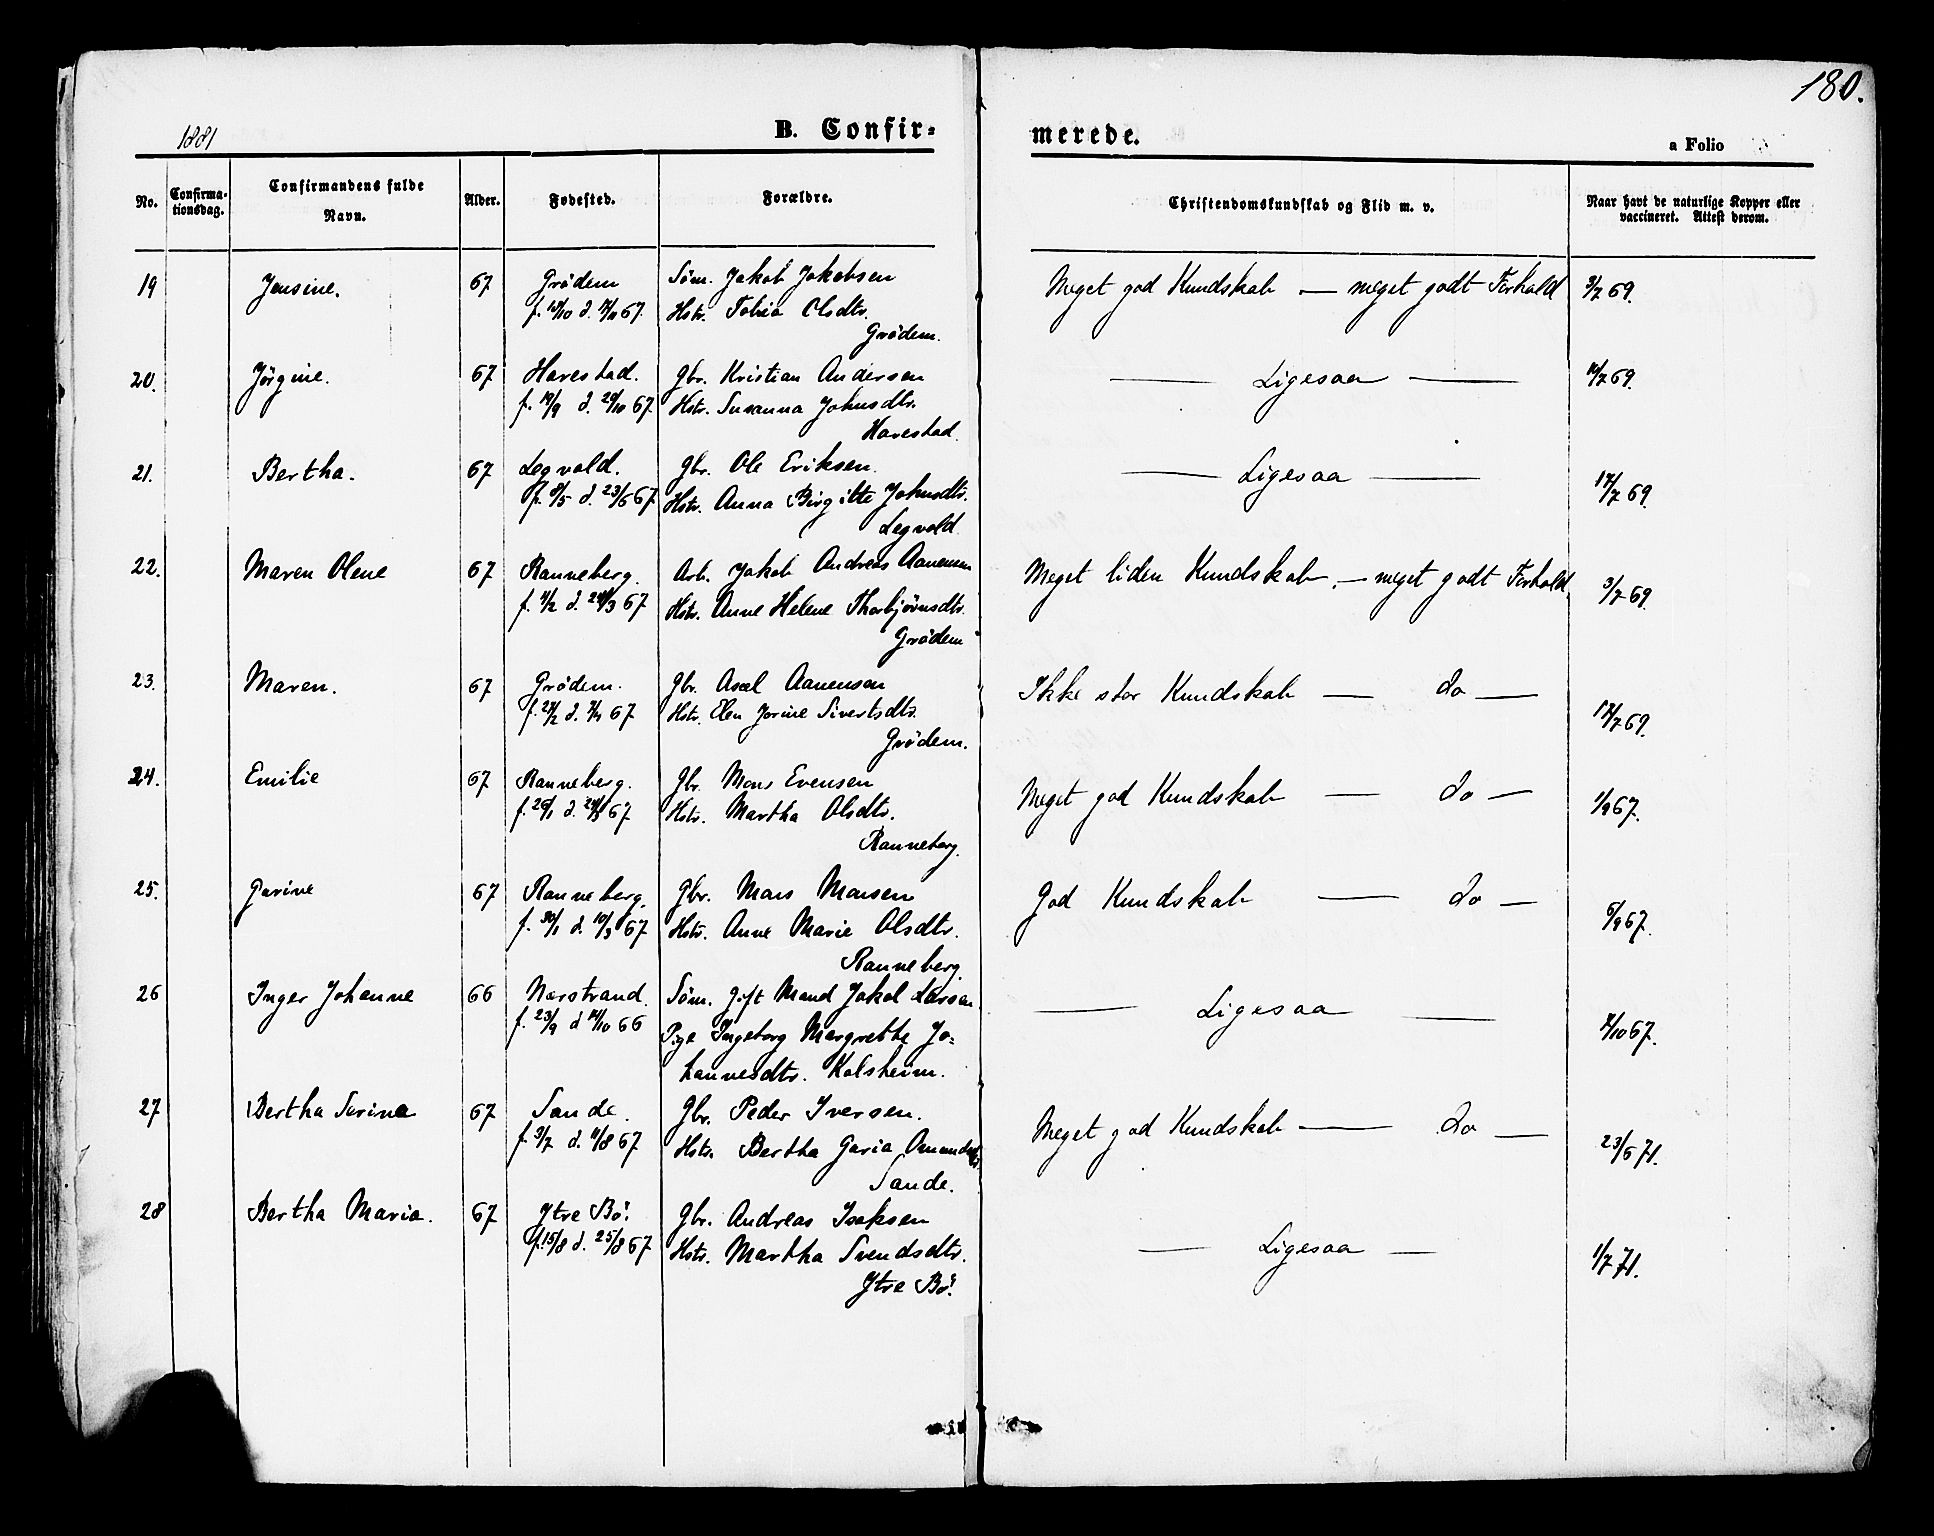 180.
1881
B. Confir-
merede.
a Folio
No.
Confirma-
tionsdag.
Confirmandens fulde
Navn.
Alder.
Fødested.
Forældre.
Christendomskundskab og Flid m. v.
Naar havt de naturlige Kopper eller
vaccineret. Attest derom.
19 Jensine. 67 Grödem Söm. Jakob Jakobsen Meget god Kundskab — meget godt Forhold 3/7 69.
Hstr. Tobia Olsdtr.
Grödem.
20. Jörgine. 67 Harestad. Gbr. Kristian Andersen — Ligesaa —
f. 19/9 d. 29/10 67. Hstr. Susanna Johnsdtr.
Harestad.
21. Bertha. 67 Legvold. Gbr. Ole Eriksen. — Ligesaa — 17/7 69.
f. 8/5 d. 23/6 67. Hstr. Anna Birgitte Johnsdtr.
Legvold
22. Maren Olene 67 Ranneberg. Arb. Jakob Andreas Aanensen Meget liden Kundskab. — meget godt Forhold. 3/7 69.
f. 4/2 d. 24/3 67 Hstr. Anne Helene Thorbjörnsdtr.
Grödem
23. Maren. 67 Grödem. Gbr. Axel Aanensen Ikke stor Kundskab — do — 17/7 69.
Hstr. Elen Jorine Sivertsdtr.
Grödem.
24. Emilie 67 Ranneberg. Gbr. Mons Evensen Meget god Kundskab — do — 1/9 67.
f. 26/1 d. 24/3 67. Hstr. Martha Olsdtr.
Ranneberg.
25. Garine 67 Ranneberg. Gbr. Mons Monsen God Kundskab — do — 5/9 67.
f. 30/1 d. 10/3 67 Hstr. Anne Marie Olsdtr.
Ranneberg.
26 Inger Johanne 66 Nærstrand. Söm. gift Mand Jakob Larsen — Ligesaa —
f. 23/9 d 14/10 66 Pige Ingeborg Margrethe Jo-
hannesdtr. Kolsheim.
27 Bertha Serine 67 Sande. Gbr. Peder Iversen. Meget god Kundskab — do — 23/6 71.
f. 3/7 d. 11/8 67 Hstr. Bertha Garia
Sande.
28 Bertha Maria. 67 Ytre Bö. Gbr. Andreas Isaksen — Ligesaa — 1/7 71.
f. 15/8 d. 25/8 67 Hstr. Martha Svendsdtr.
Ytre Bö.